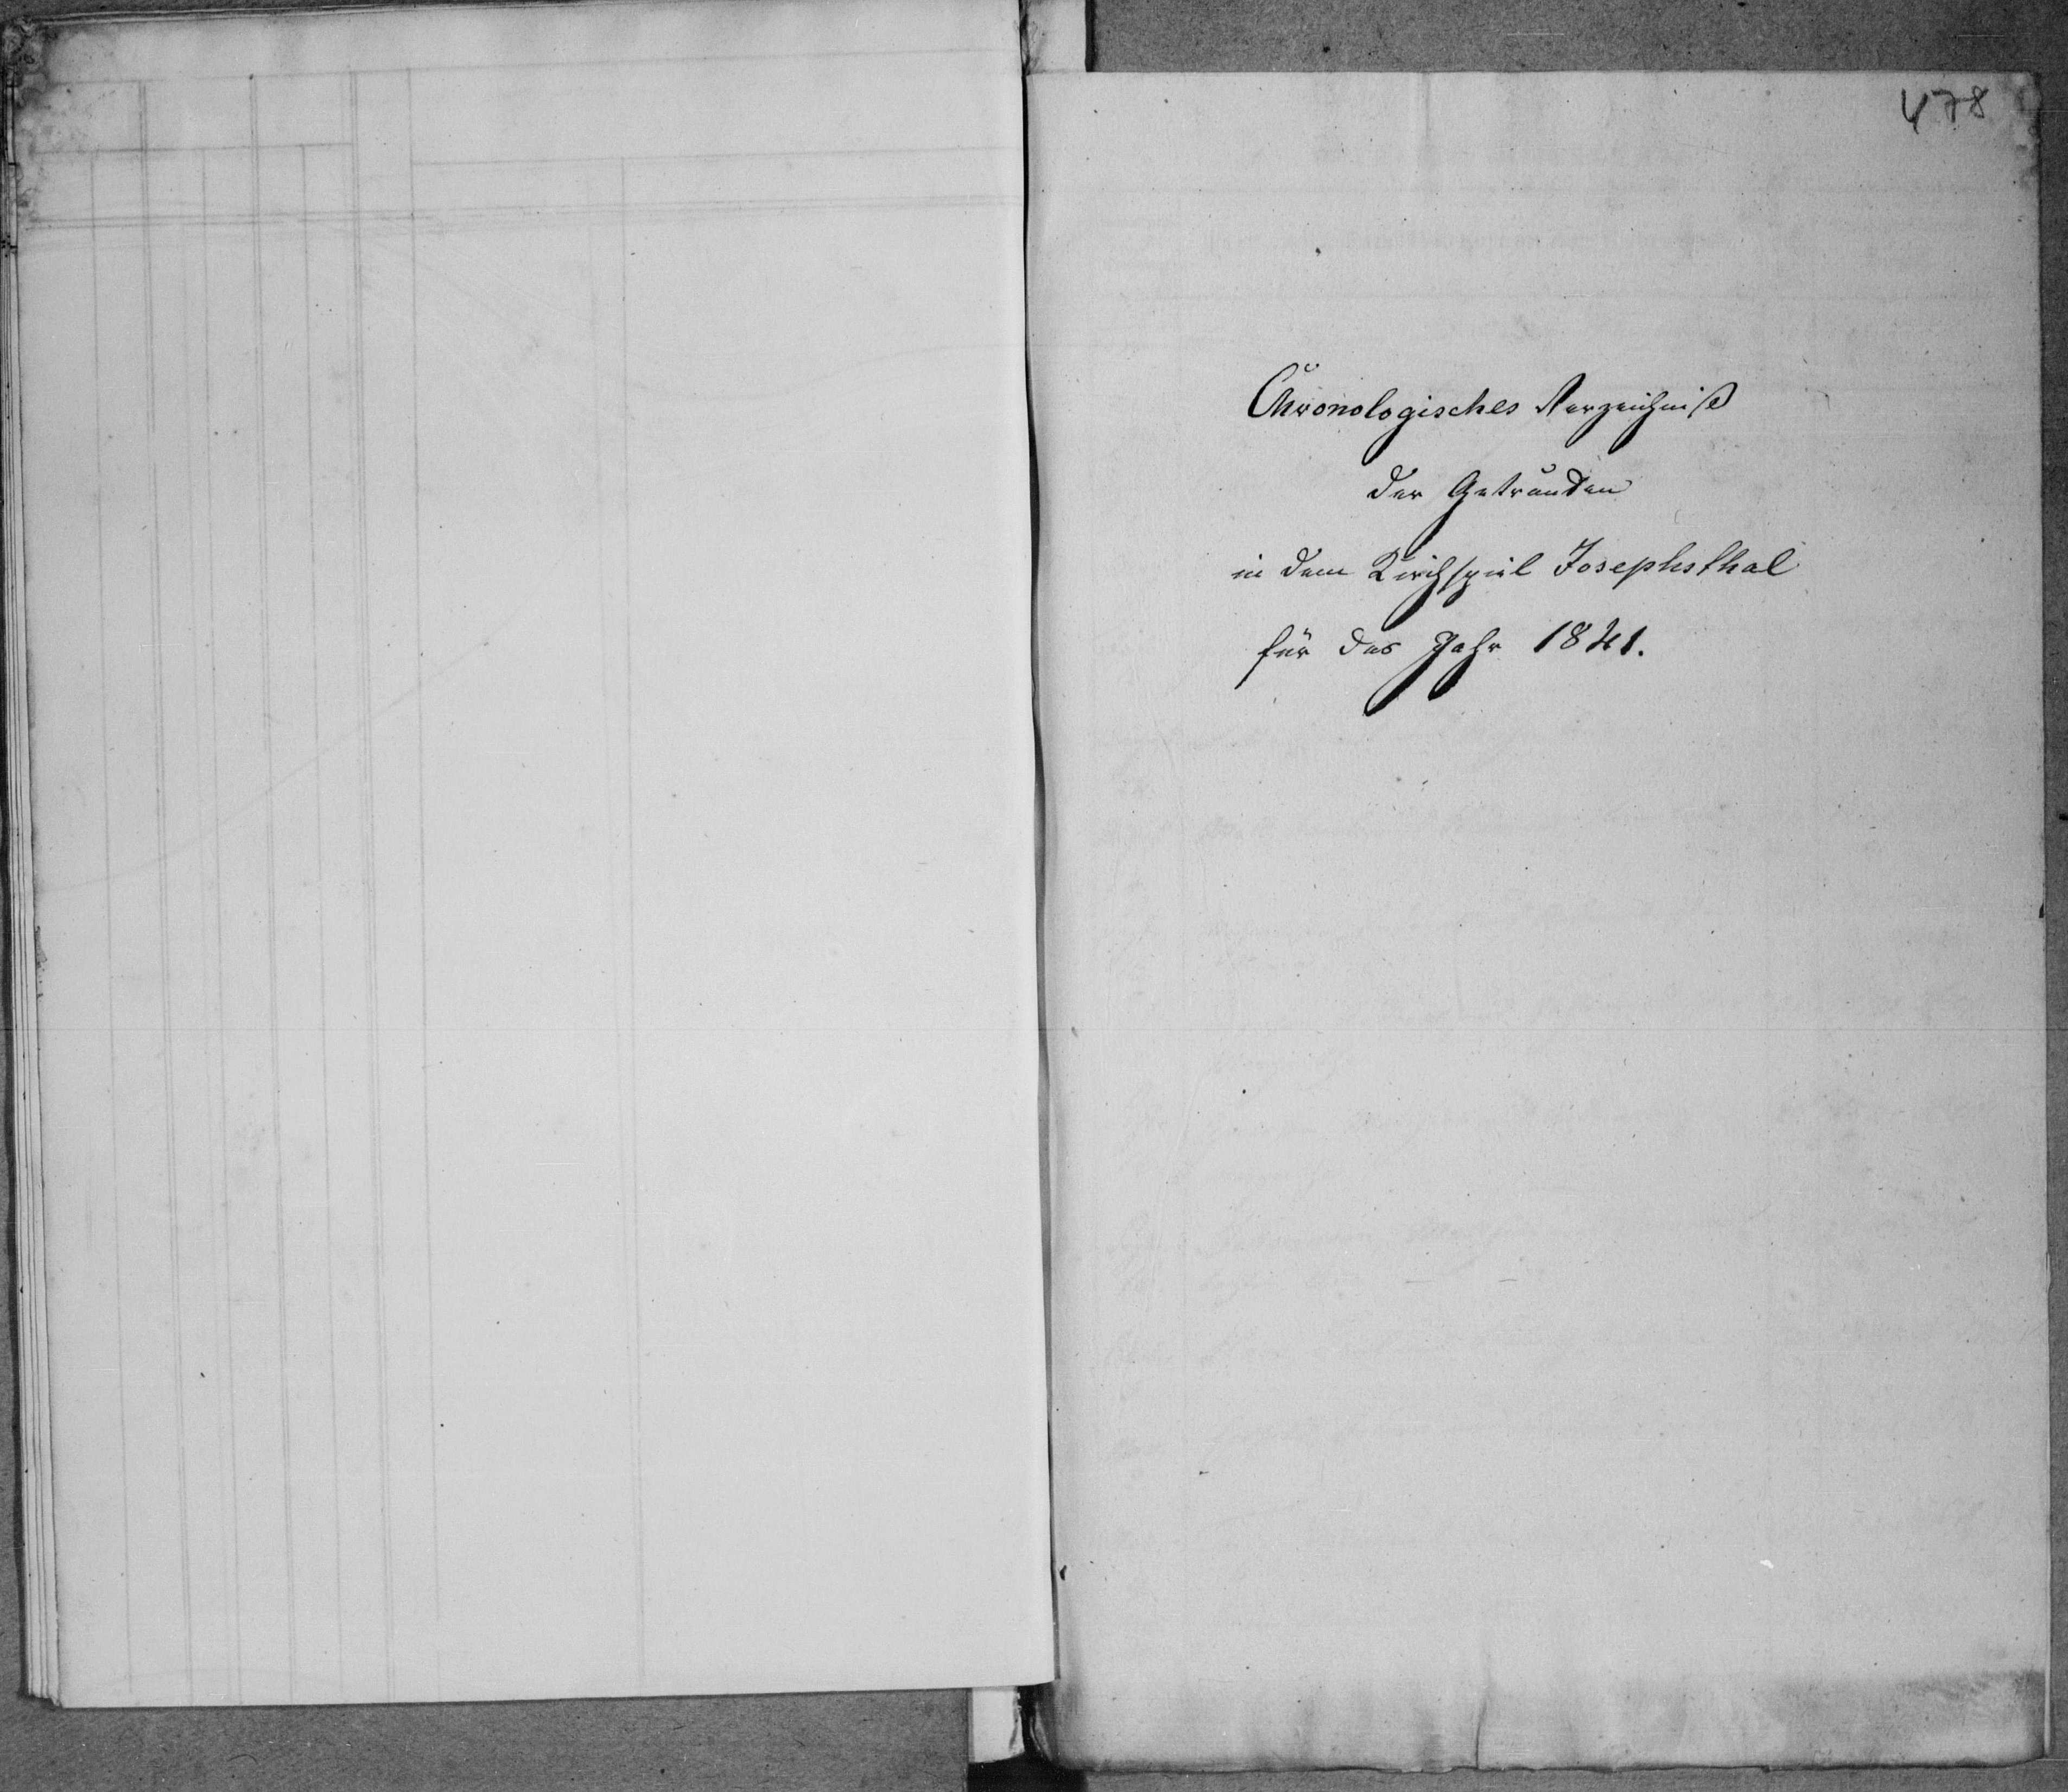 478
Chronologisches Verzeichniß
der Getrauten
in dem Kirchspiel Josephsthal
für das Jahr 1841.